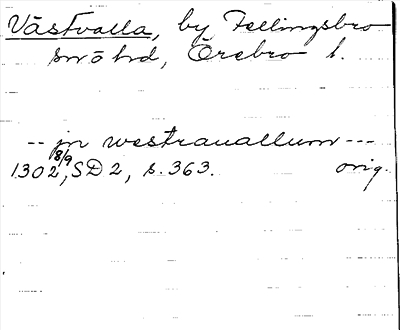 Västvalla, by Fellingsbro
sn o hd, Örebro l.
-- jn westrauallum ---
1302 18/9, SD 2, s. 363. orig.